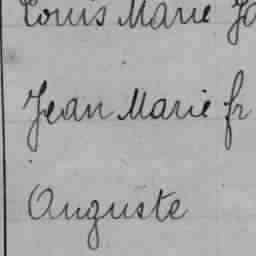 Louis Marie
Jean Marie fr
Auguste